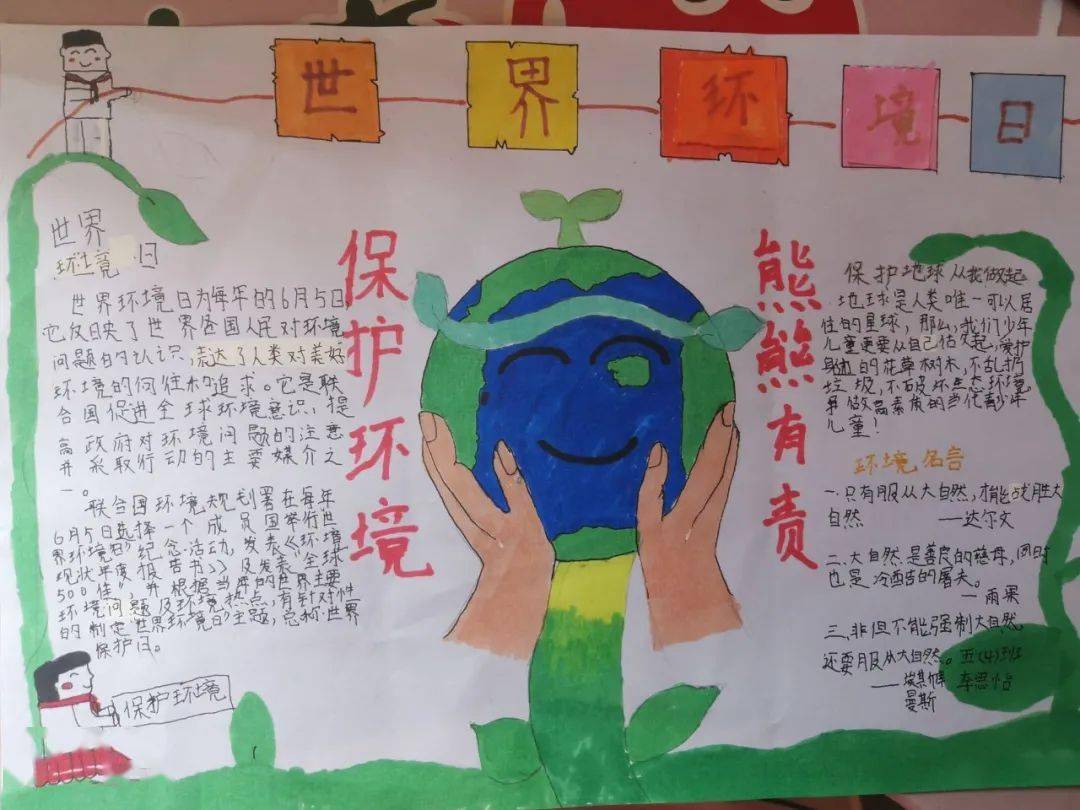 世界环境日
世界
环境日
世界环境日为每年的6月5日,
它反映了世界各国人民对环境
问题的认识,表达了人类对美好
环境的向往和追求。它是联
合国促进全球环境意识、提
高政府对环境问题的注意
并采取行动的主要媒介之
一。
联合国环境规划署在每年
6月5日选择一个成员国举行世
界环境日"纪念活动,发表《环境
现状年度报告书》及发表《全球
500佳",并根据当年的世界主要
环境问题及环境热点,有针对性
的制定"世界环境日"主题,总称世界
保护日。
保护环境
保护环境
熊熊有责
保护地球从我做起
地球是人类唯一可以居
住的星球,那么,我们少年
儿童更要从自己做起,爱护
的花草树木,不乱扔
垃圾,不破坏生态环境
争做高素质的当代青少年
儿童!
环境名言
一.只有服从大自然,才能战胜大
自然 ——达尔文
二.大自然是善良的慈母,同时
也是冷酷的屠夫。
—雨果
三.非但不能强制大自然,
还要服从大自然。
——埃斯
曼斯
五(4)班
李思怡